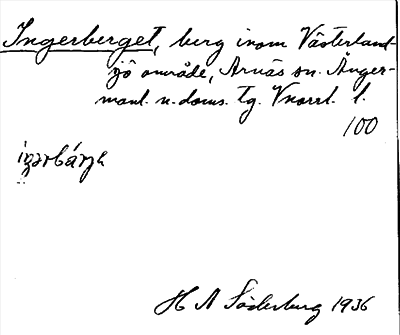 Ingerberget, berg inom Västerland-
sjö område, Arnäs sn. Ånger-
manl. n. doms. Tg. Vnorrl. l.
100
H A Söderburg 1936